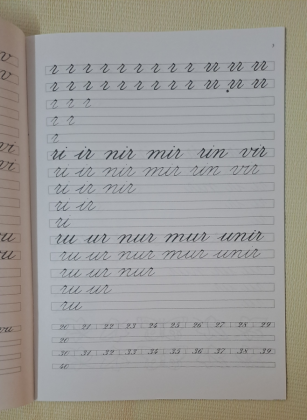 r r r r r r r r r rr rr rr
r r r r r r r r r rr rr rr
r r r
r r
r
ri ir nir mir rin vir
ri ir nir mir rin vir
ri ir nir
ri ir
ri
ru ur nur mur unir
ru ur nur mur unir
ru ur nur
ru ur
ru
20 21 22 23 24 25 26 27 28 29
20
30 31 32 33 34 35 36 37 38 39
40